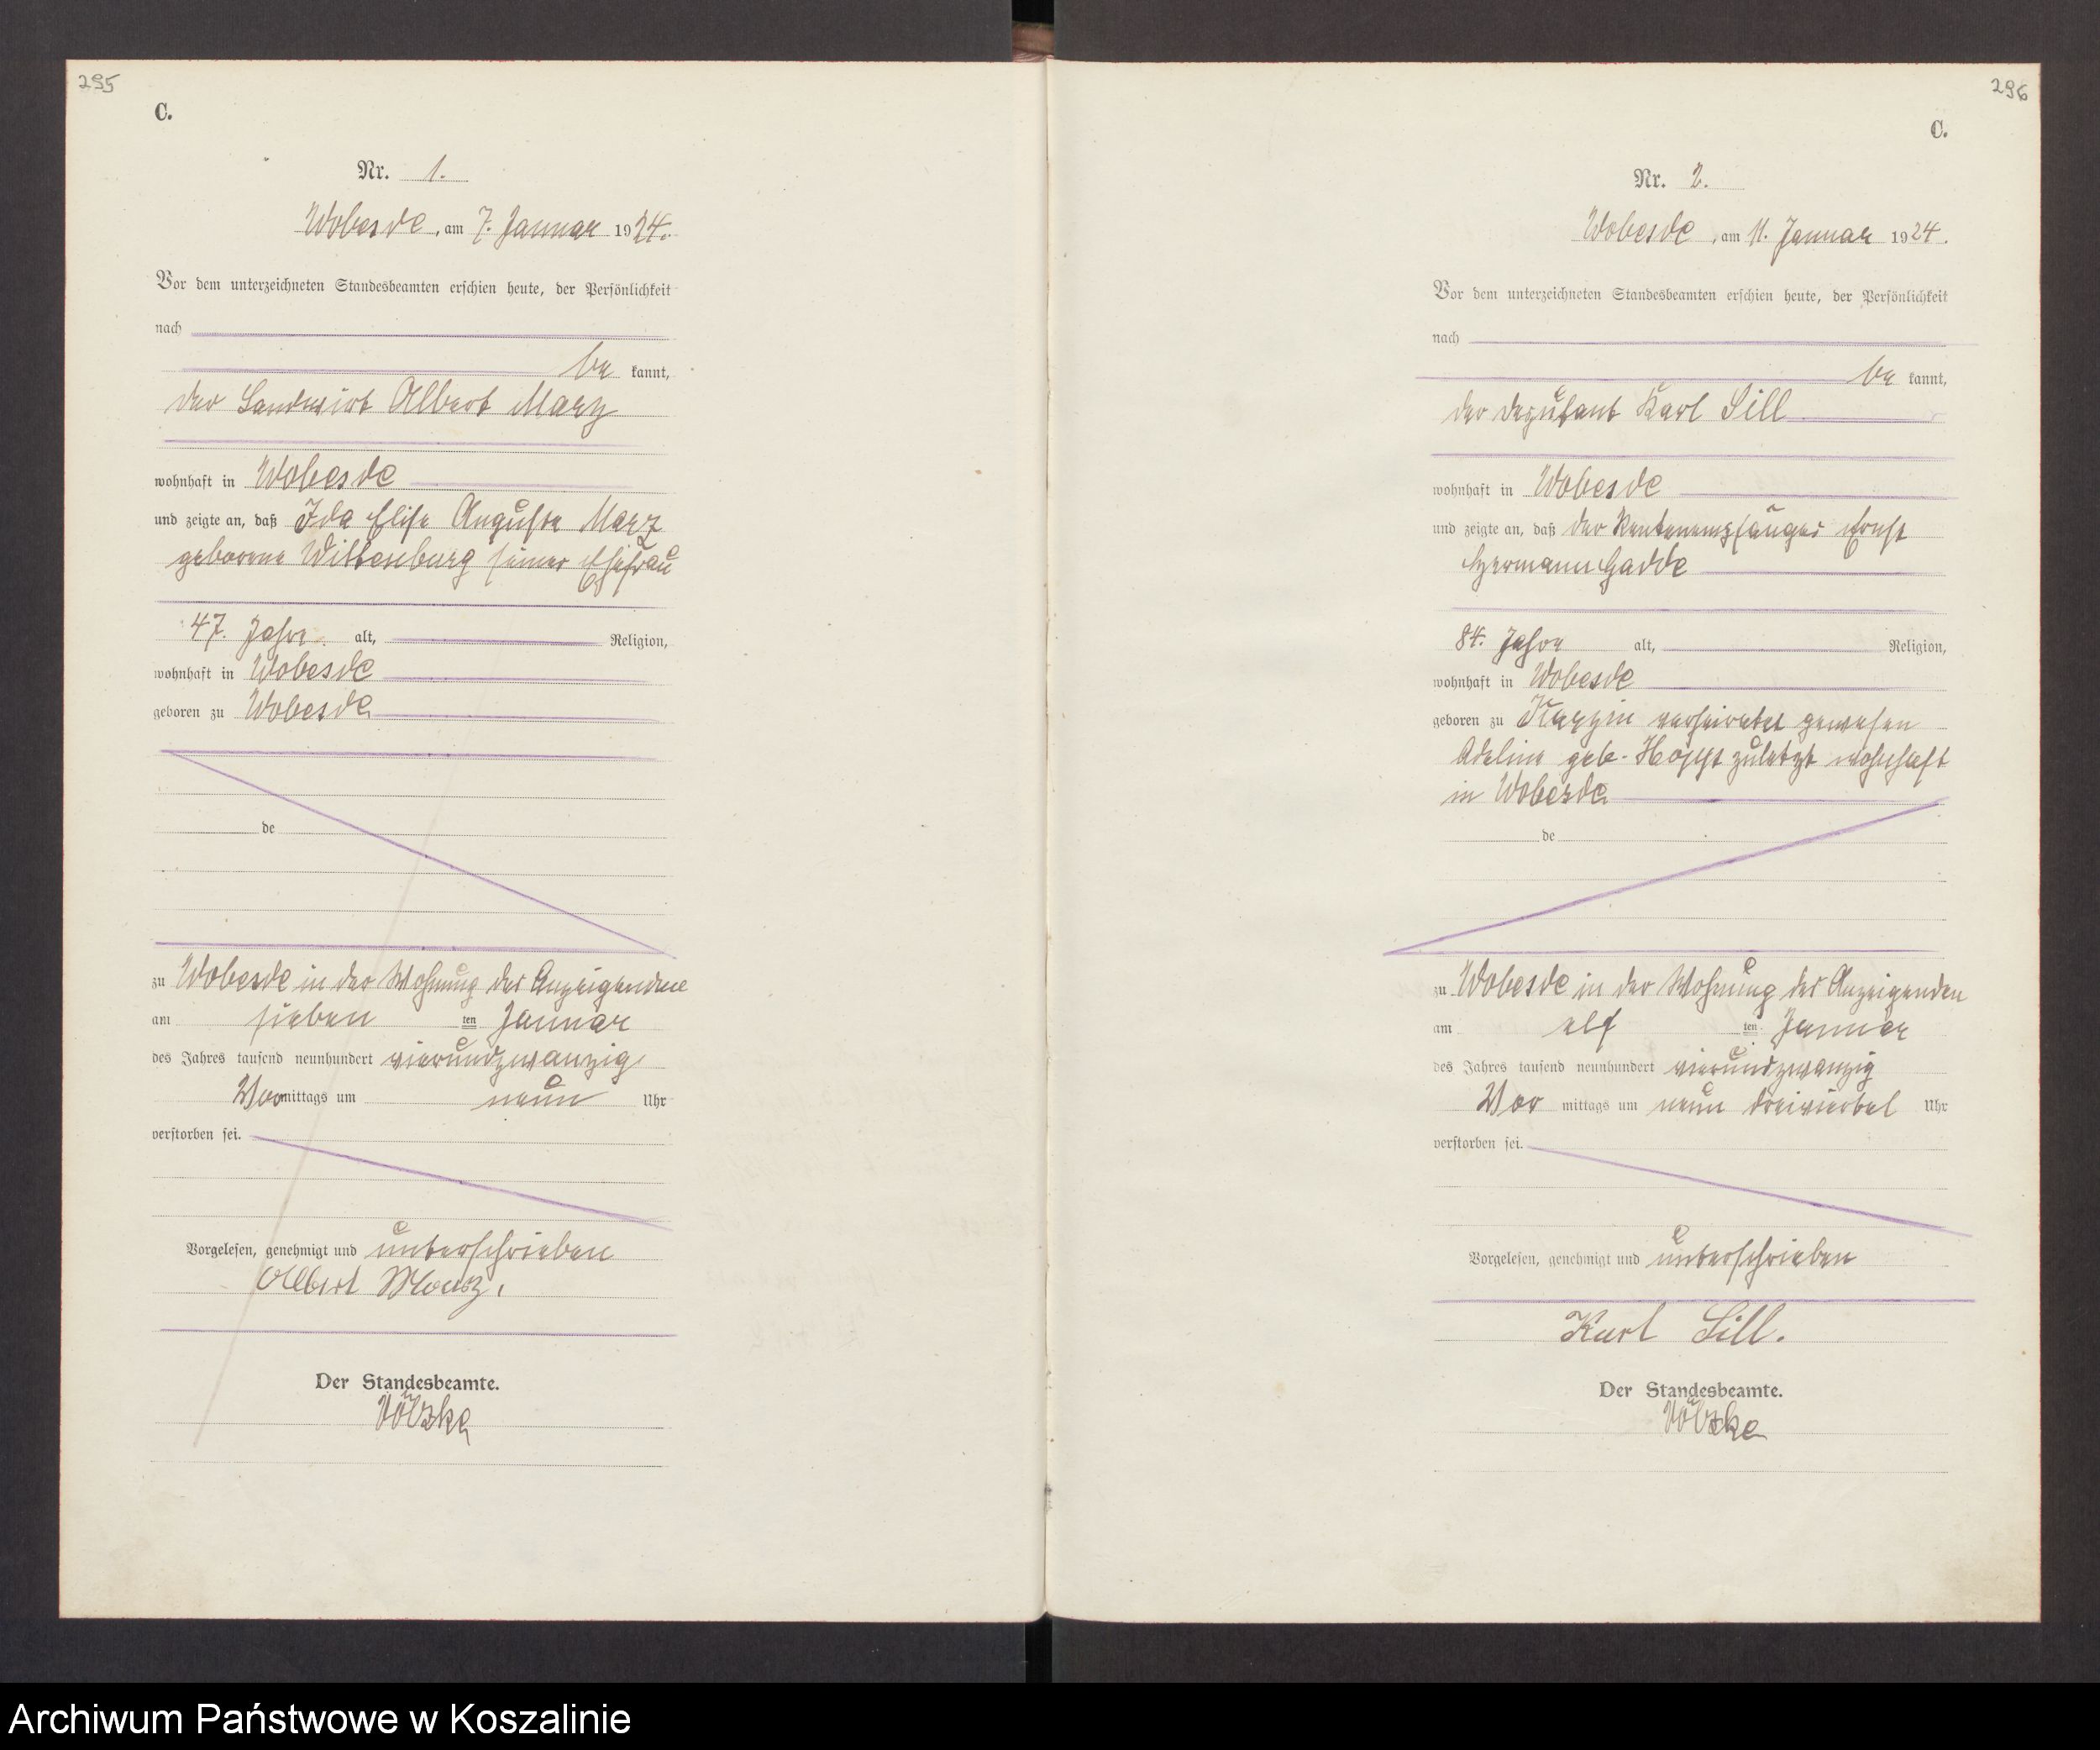 295
C.
Nr. 1.
Wobesde, am 7. Januar 1924.
Vor dem unterzeichneten Standesbeamten erschien heute, der Persönlichkeit
nach
be kannt,
der Landwirt Albert Marz
wohnhaft in Wobesde
und zeigte an, daß Ida Elise Auguste Marz
geborene Wittenburg seiner Ehefrau
47. Jahre alt, Religion,
wohnhaft in Wobesde
geboren zu Wobesde
de
zu Wobesde in der Wohnung des Anzeigenden
am sieben ten Januar
des Jahres tausend neunhundert vierundzwanzig
Vor mittags um neun Uhr
verstorben sei.
Vorgelesen, genehmigt und unterschrieben
Albert Marz.
Der Standesbeamte.
Völzke
296
C.
Nr. 2.
Wobesde, am 11. Januar 1924.
Vor dem unterzeichneten Standesbeamten erschien heute, der Persönlichkeit
nach
be kannt,
der Deputant Karl Sill
wohnhaft in Wobesde
und zeigte an, daß der Rentenempfänger Ernst
Hermann Gadde
84. Jahre alt, Religion,
wohnhaft in Wobesde
geboren zu verheiratet gewesen
Adeline geb. zuletzt wohnhaft
in Wobesde
de
zu Wobesde in der Wohnung des Anzeigenden
am elf ten Januar
des Jahres tausend neunhundert vierundzwanzig
Vor mittags um neun dreiviertel Uhr
verstorben sei.
Vorgelesen, genehmigt und unterschrieben
Karl Sill.
Der Standesbeamte.
Völzke
Archiwum Państwowe w Koszalinie